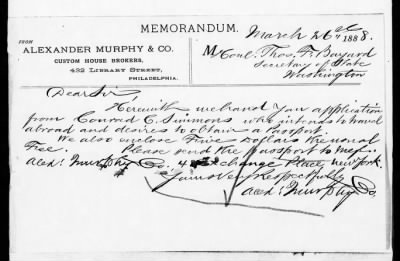 MEMORANDUM.
March 26th 1888.
FROM
ALEXANDER MURPHY & CO.
CUSTOM HOUSE BROKERS,
432 LIBRARY STREET,
PHILADELPHIA.
M Honl. Thos. F. Bayard
Secretary of State
Washington
Dear Sir,
Herewith we hand you application
from Conrad C. Simmons who intends to travel
abroad and desires to obtain a Passport.
We also enclose Five Dollars the usual
Fee. Please send the passport to Mess.
Alex: Murphy & Co. 4 Exchange Place, New York.
Yours Very Respectfully
Alex: Murphy & Co